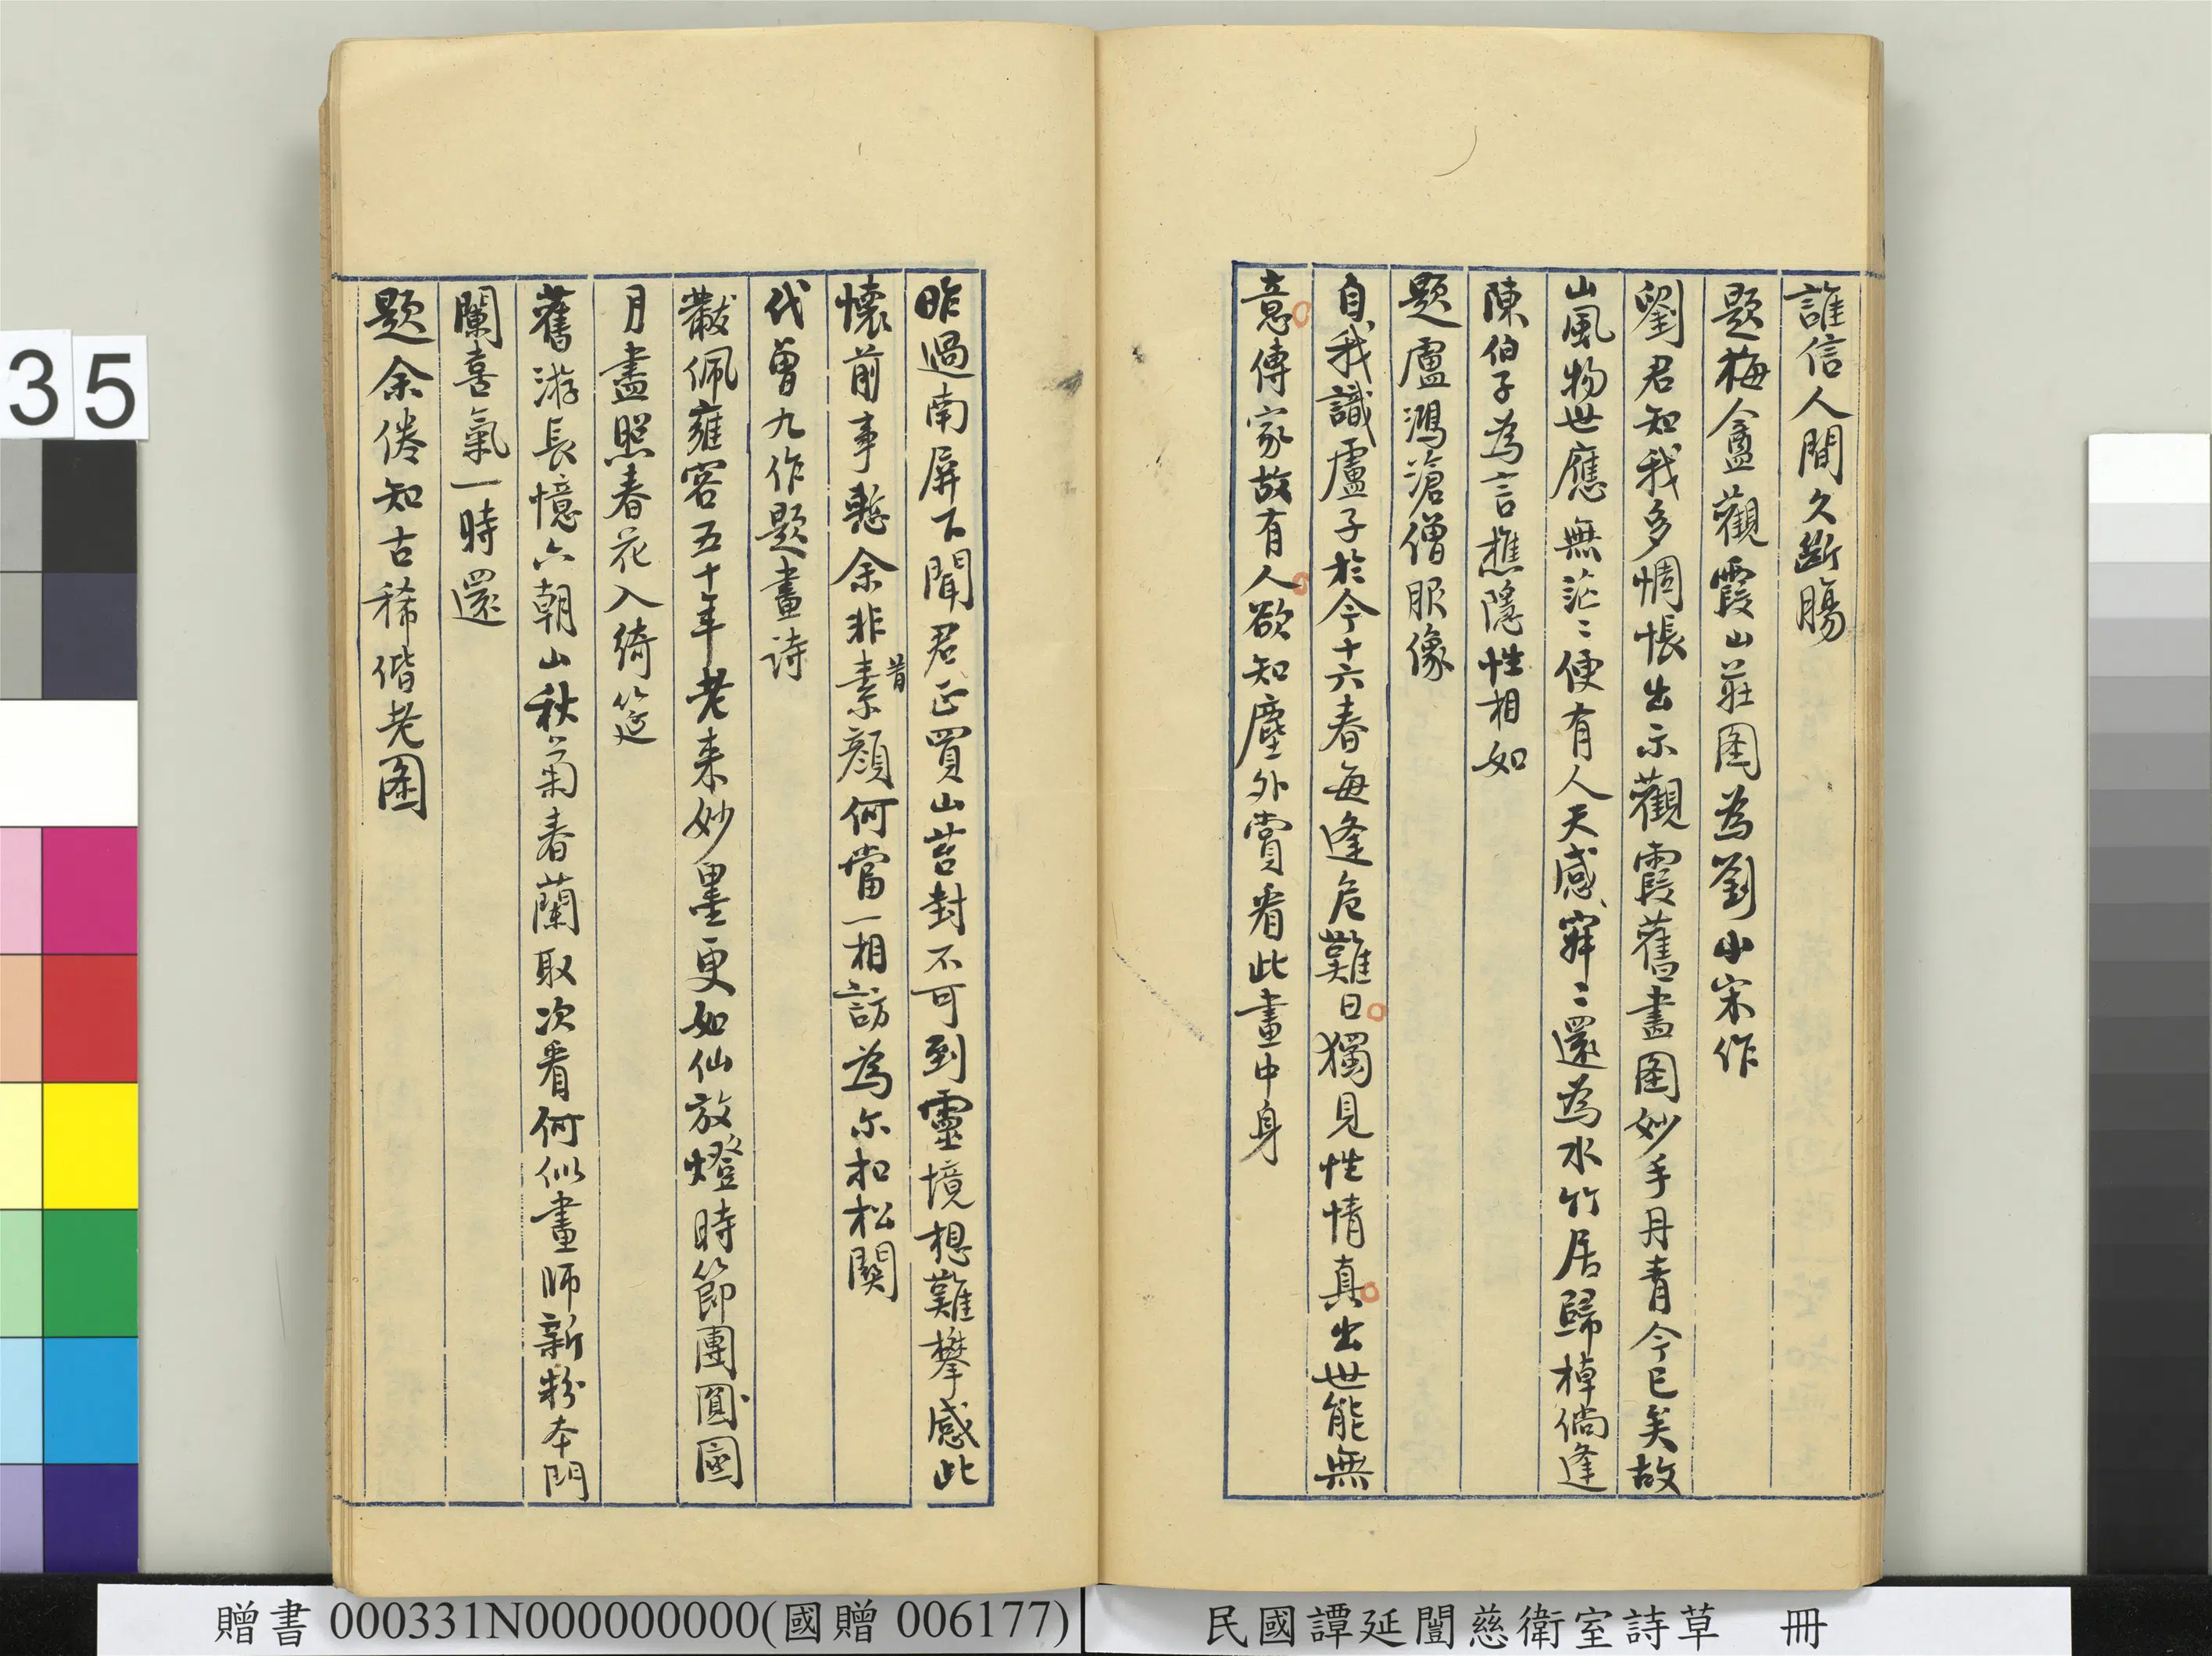 誰信人間久斷腸
題梅盦觀霞山莊圖為劉小宋作
劉君知我多惆悵出示觀霞舊畫圖妙手丹青今已矣故
山風物世應無茫〻便有人天感寂〻還為水竹居歸棹倘逢
陳伯子為言樵隱性相如
題盧鴻滄僧服像
自我識盧子於今十六春每逢危難日獨見性情真出世能無
意傳家故有人欲知塵外賞看此畫中身
昨過南屏下聞君正買山苔封不可到靈境想難攀感此
懷前事慙余非素顏何當一相訪為尔扣松關
昔
代曾九作題畫詩
黻佩雍容五十年老來妙墨更如仙放燈時節團圓
月盡照春花入綺筵
舊游長憶六朝山秋菊春蘭取次看何似畫師新粉本門
闌喜氣一時還
題余倦知古稀偕老圖
35
贈書 000331N000000000(國贈 006177)
民國譚延闓慈衛室詩草 冊